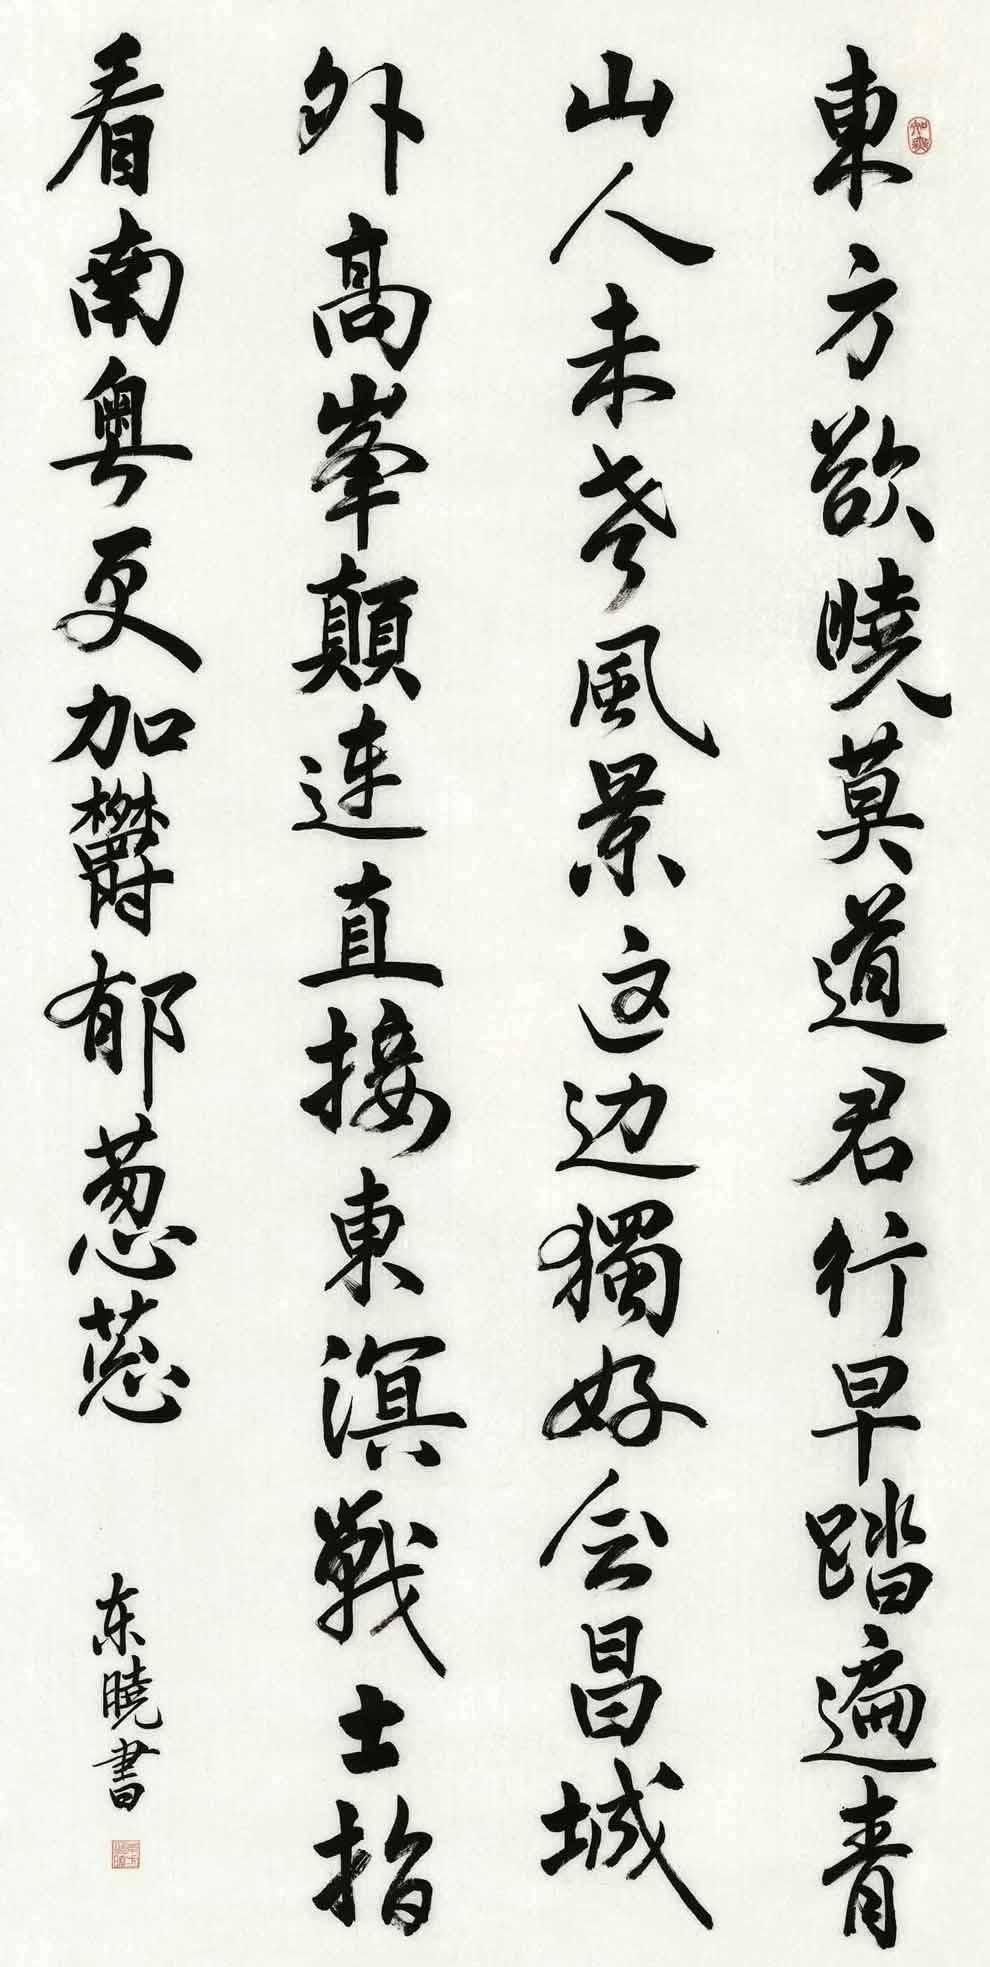 東方欲曉莫道君行早踏遍青
山人未老風景这边獨好会昌城
外高峯顛连直接東溟戰士指
看南粤更加欝郁葱葱
东曉書